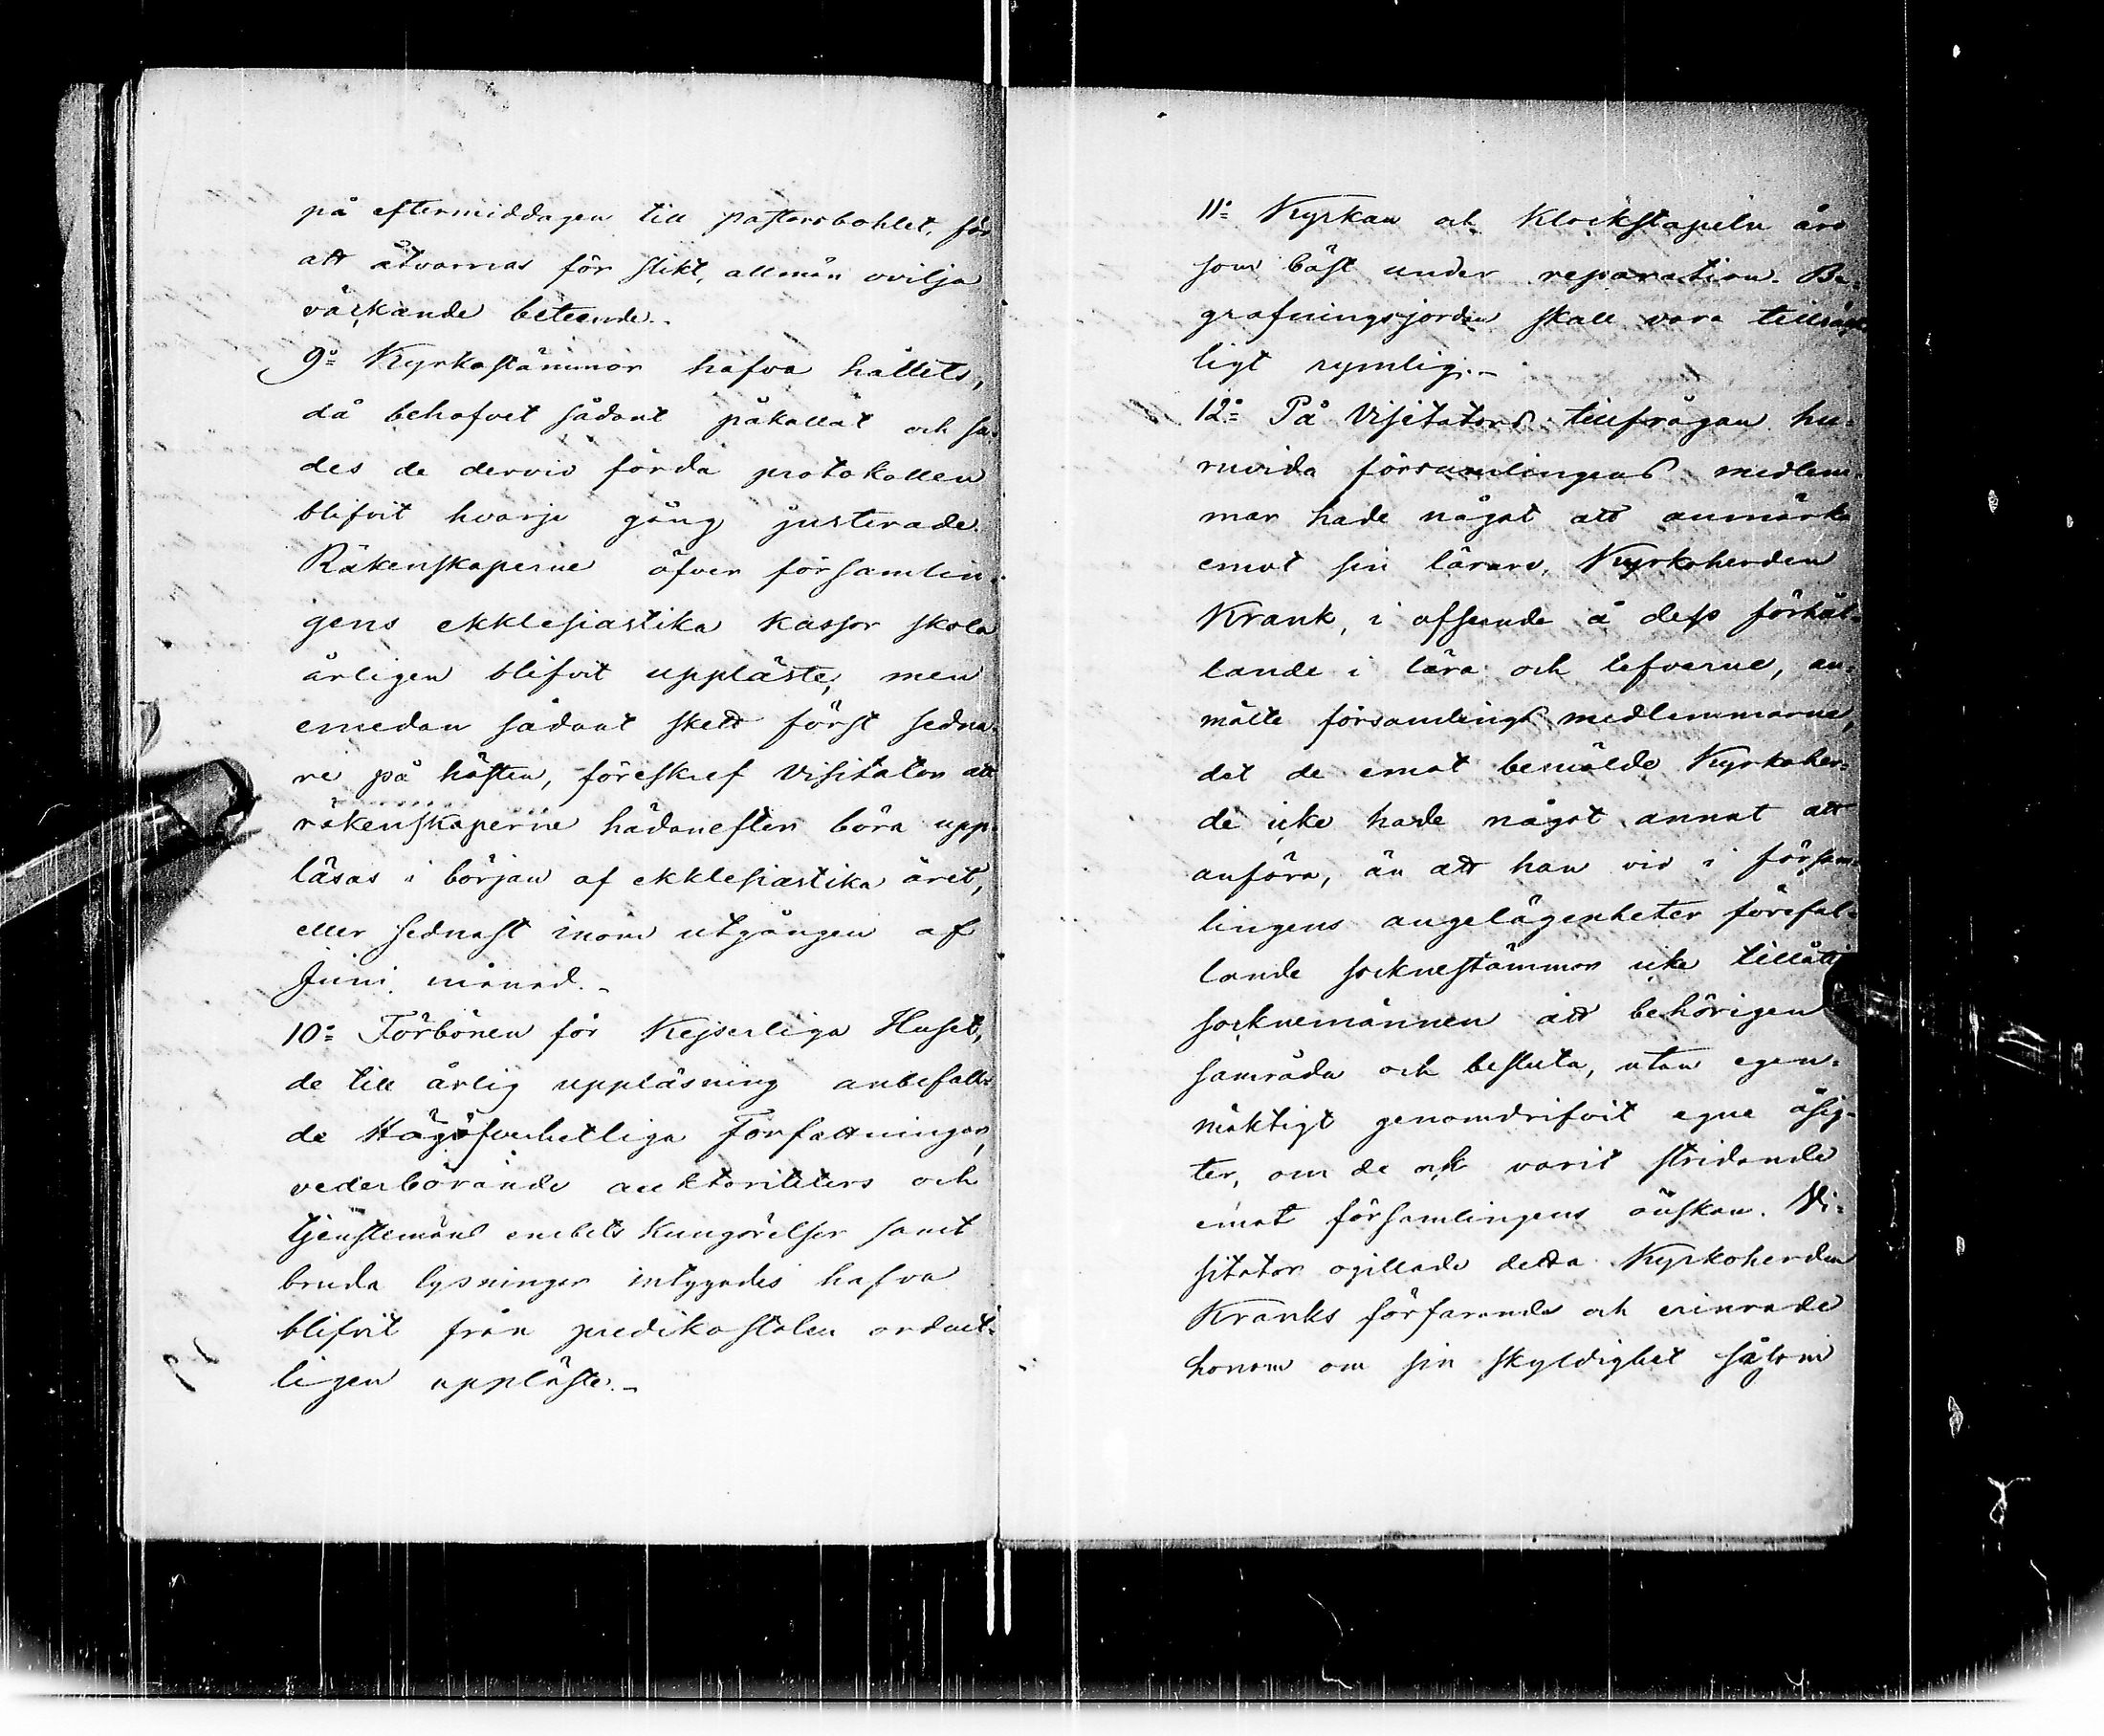 på eftermiddagen till pastorsbohlet, för
att åtvarnas för slikt, allmän ovilja
väckande beteende.-
9:o Kyrkostämmor hafva hållits,
då behofvet sådant påkallat och sa-
des de dervid förda protokollen
blifvit hvarje gång justerade.
Räkenskaperne öfver församlin-
gens ekklesiastika kassor skola
årligen blifvit uppläste, men
emedan sådant skett först sedna-
re på hösten, föreskref Visitator att
räkenskaperne hädanefter böra upp-
läsas i början af ekklesiastika året,
eller sednast inom utgången af
Juni månad.-
10:o Förbönen för Kejserliga Huset,
de till årlig uppläsning anbefall-
de Högöfverhetliga Författningar,
vederbörande auktoriteters och
tjenstemäns embets kungörelser samt
bruda lysningar intygades hafva
blifvit från predikostolen ordent-
ligen uppläste.-
11:o Kyrkan och Klockstapeln äro
som bäst under reparation. Be-
grafningsjorden skall vara tillräck-
ligt rymlig.-
12:o På Visitators tillfrågan hu-
ruvida församlingens medlem-
mar hade något att anmärka
emot sin lärare, Kyrkoherden
Krank, i afseende å dess förhål-
lande i lära och lefverne, an-
mälte församlings medlemmarne,
det de emot bemälde Kyrkoher-
de icke hade något annat att
anföra, än att han vid i försam-
lingens angelägenheter förefal-
lande socknestämmor icke tillåtit
socknemännen att behörigen
samråda och besluta, utan egen-
mäktigt genomdrifvit egne åsig-
ter, om de ock varit stridande
emot församlingens önskan. Vi-
sitator ogillade detta Kyrkoherden
Kranks förfarande och erinrade
honom om sin skyldighet såsom